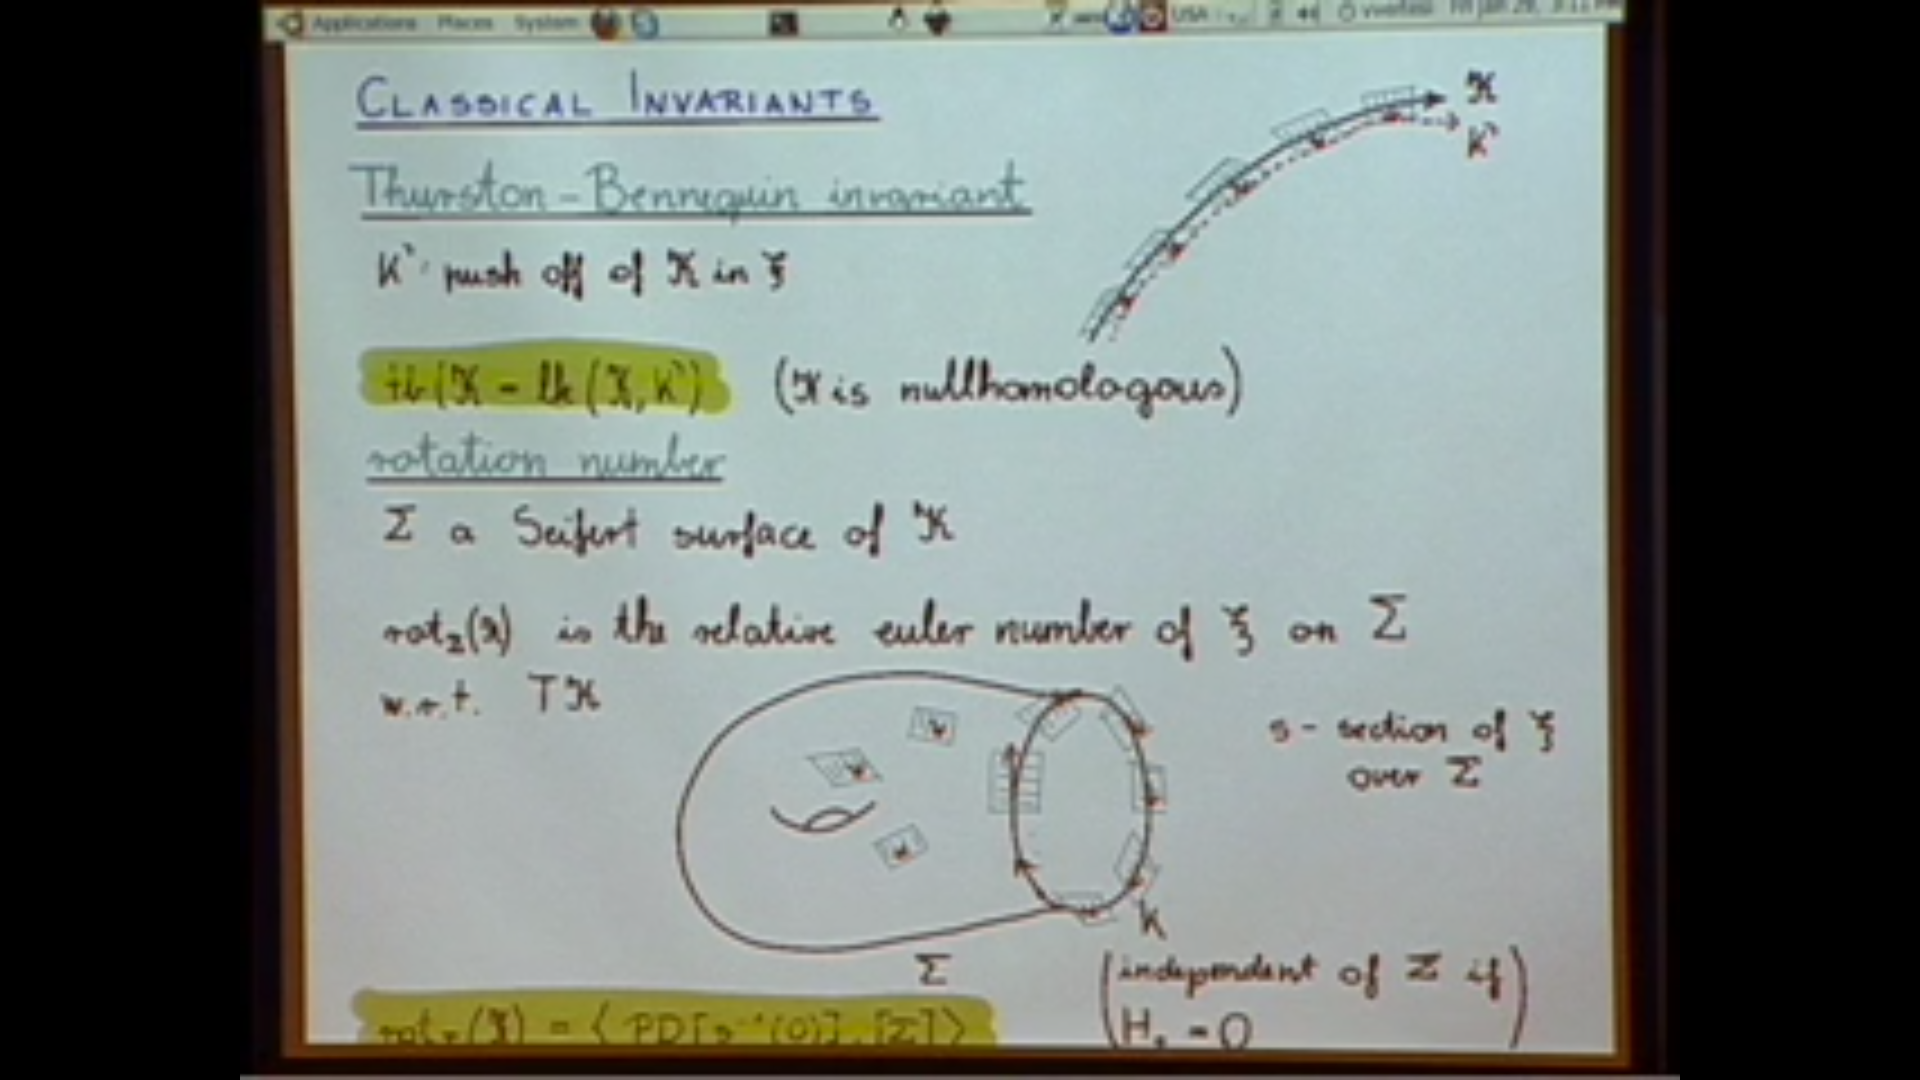 Applications Places System USA
CLASSICAL INVARIANTS
𝒦
K'
Thurston-Bennequin invariant
K': push off of 𝒦 in ξ
tb(𝒦 = lk(𝒦, K') (𝒦 is nullhomologous)
rotation number
Σ a Seifert surface of 𝒦
rot_Σ(𝒦) is the relative euler number of ξ on Σ
w.r.t. T𝒦
s - section of ξ
over Σ
K
Σ
(independent of Σ if
H₂ = 0)
rot_Σ(𝒦) = ⟨PD[s⁻¹(0)], [Σ]⟩